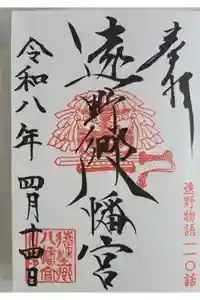 奉拝
遠野郷八幡宮
令和八年
四月十四日
遠野物語一一〇話
遠野郷
八幡宮